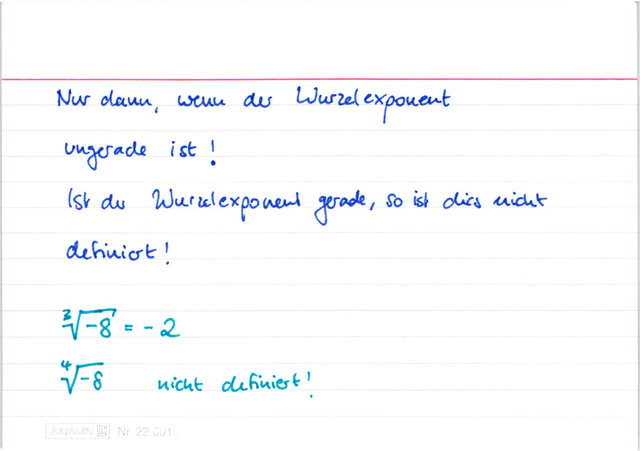 Nur dann, wenn der Wurzelexponent
ungerade ist!
Ist der Wurzelexponent gerade, so ist dies nicht
definiert!
∛-8 = -2
∜-8 nicht definiert!
Nr. 22 601